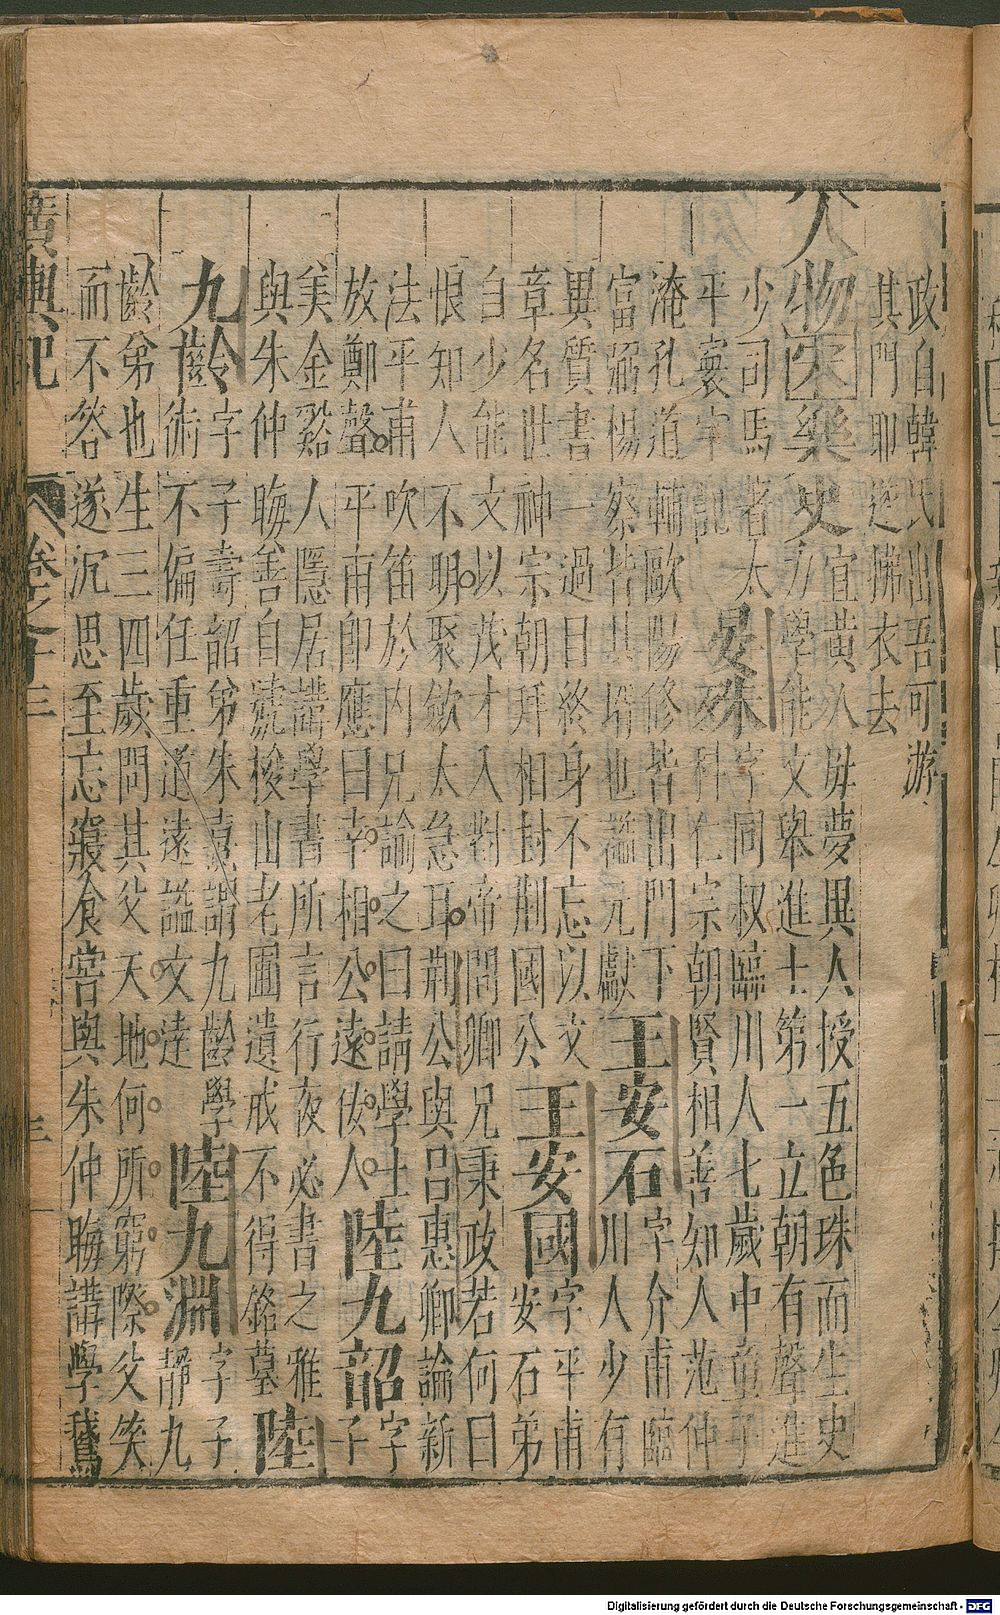 政自韓氏出吾可游
其門耶遂拂衣去
人物 宋 樂史
宜黃人毋夢異人授五色珠而生史
力學能文舉進士第一立朝有聲進
少司馬著太
平寰宇記
晏殊
字同叔臨川人七歲中童子
科仁宗朝賢相善知人范仲
淹孔道輔歐陽修皆出門下
富弼楊察皆其壻也諡元獻
王安石
字介甫臨
川人少有
異質書一過目終身不忘以文
章名世神宗朝拜相封荆國公
王安國
字平甫
安石弟
自少能文以茂才入對帝問卿兄秉政若何曰
恨知人不明聚斂太急耳荆公與吕惠卿論新
法平甫吹笛於内兄諭之曰請學士
放鄭聲平甫即應曰幸相公遠佞人
陸九韶
字
子
美金谿人隱居講學書所言行夜必書之雅
與朱仲晦善自號梭山老圃遺戒不得銘墓
陸
九齡
字子壽韶弟朱熹謂九齡學
術不偏任重道遠諡文達
陸九淵
字子
靜九
齡弟也生三四歲問其父天地何所窮際父笑
而不答遂沉思至忘寢食嘗與朱仲晦講學鵝
廣輿記 卷之十二 三
Digitalisierung gefördert durch die Deutsche Forschungsgemeinschaft - DFG